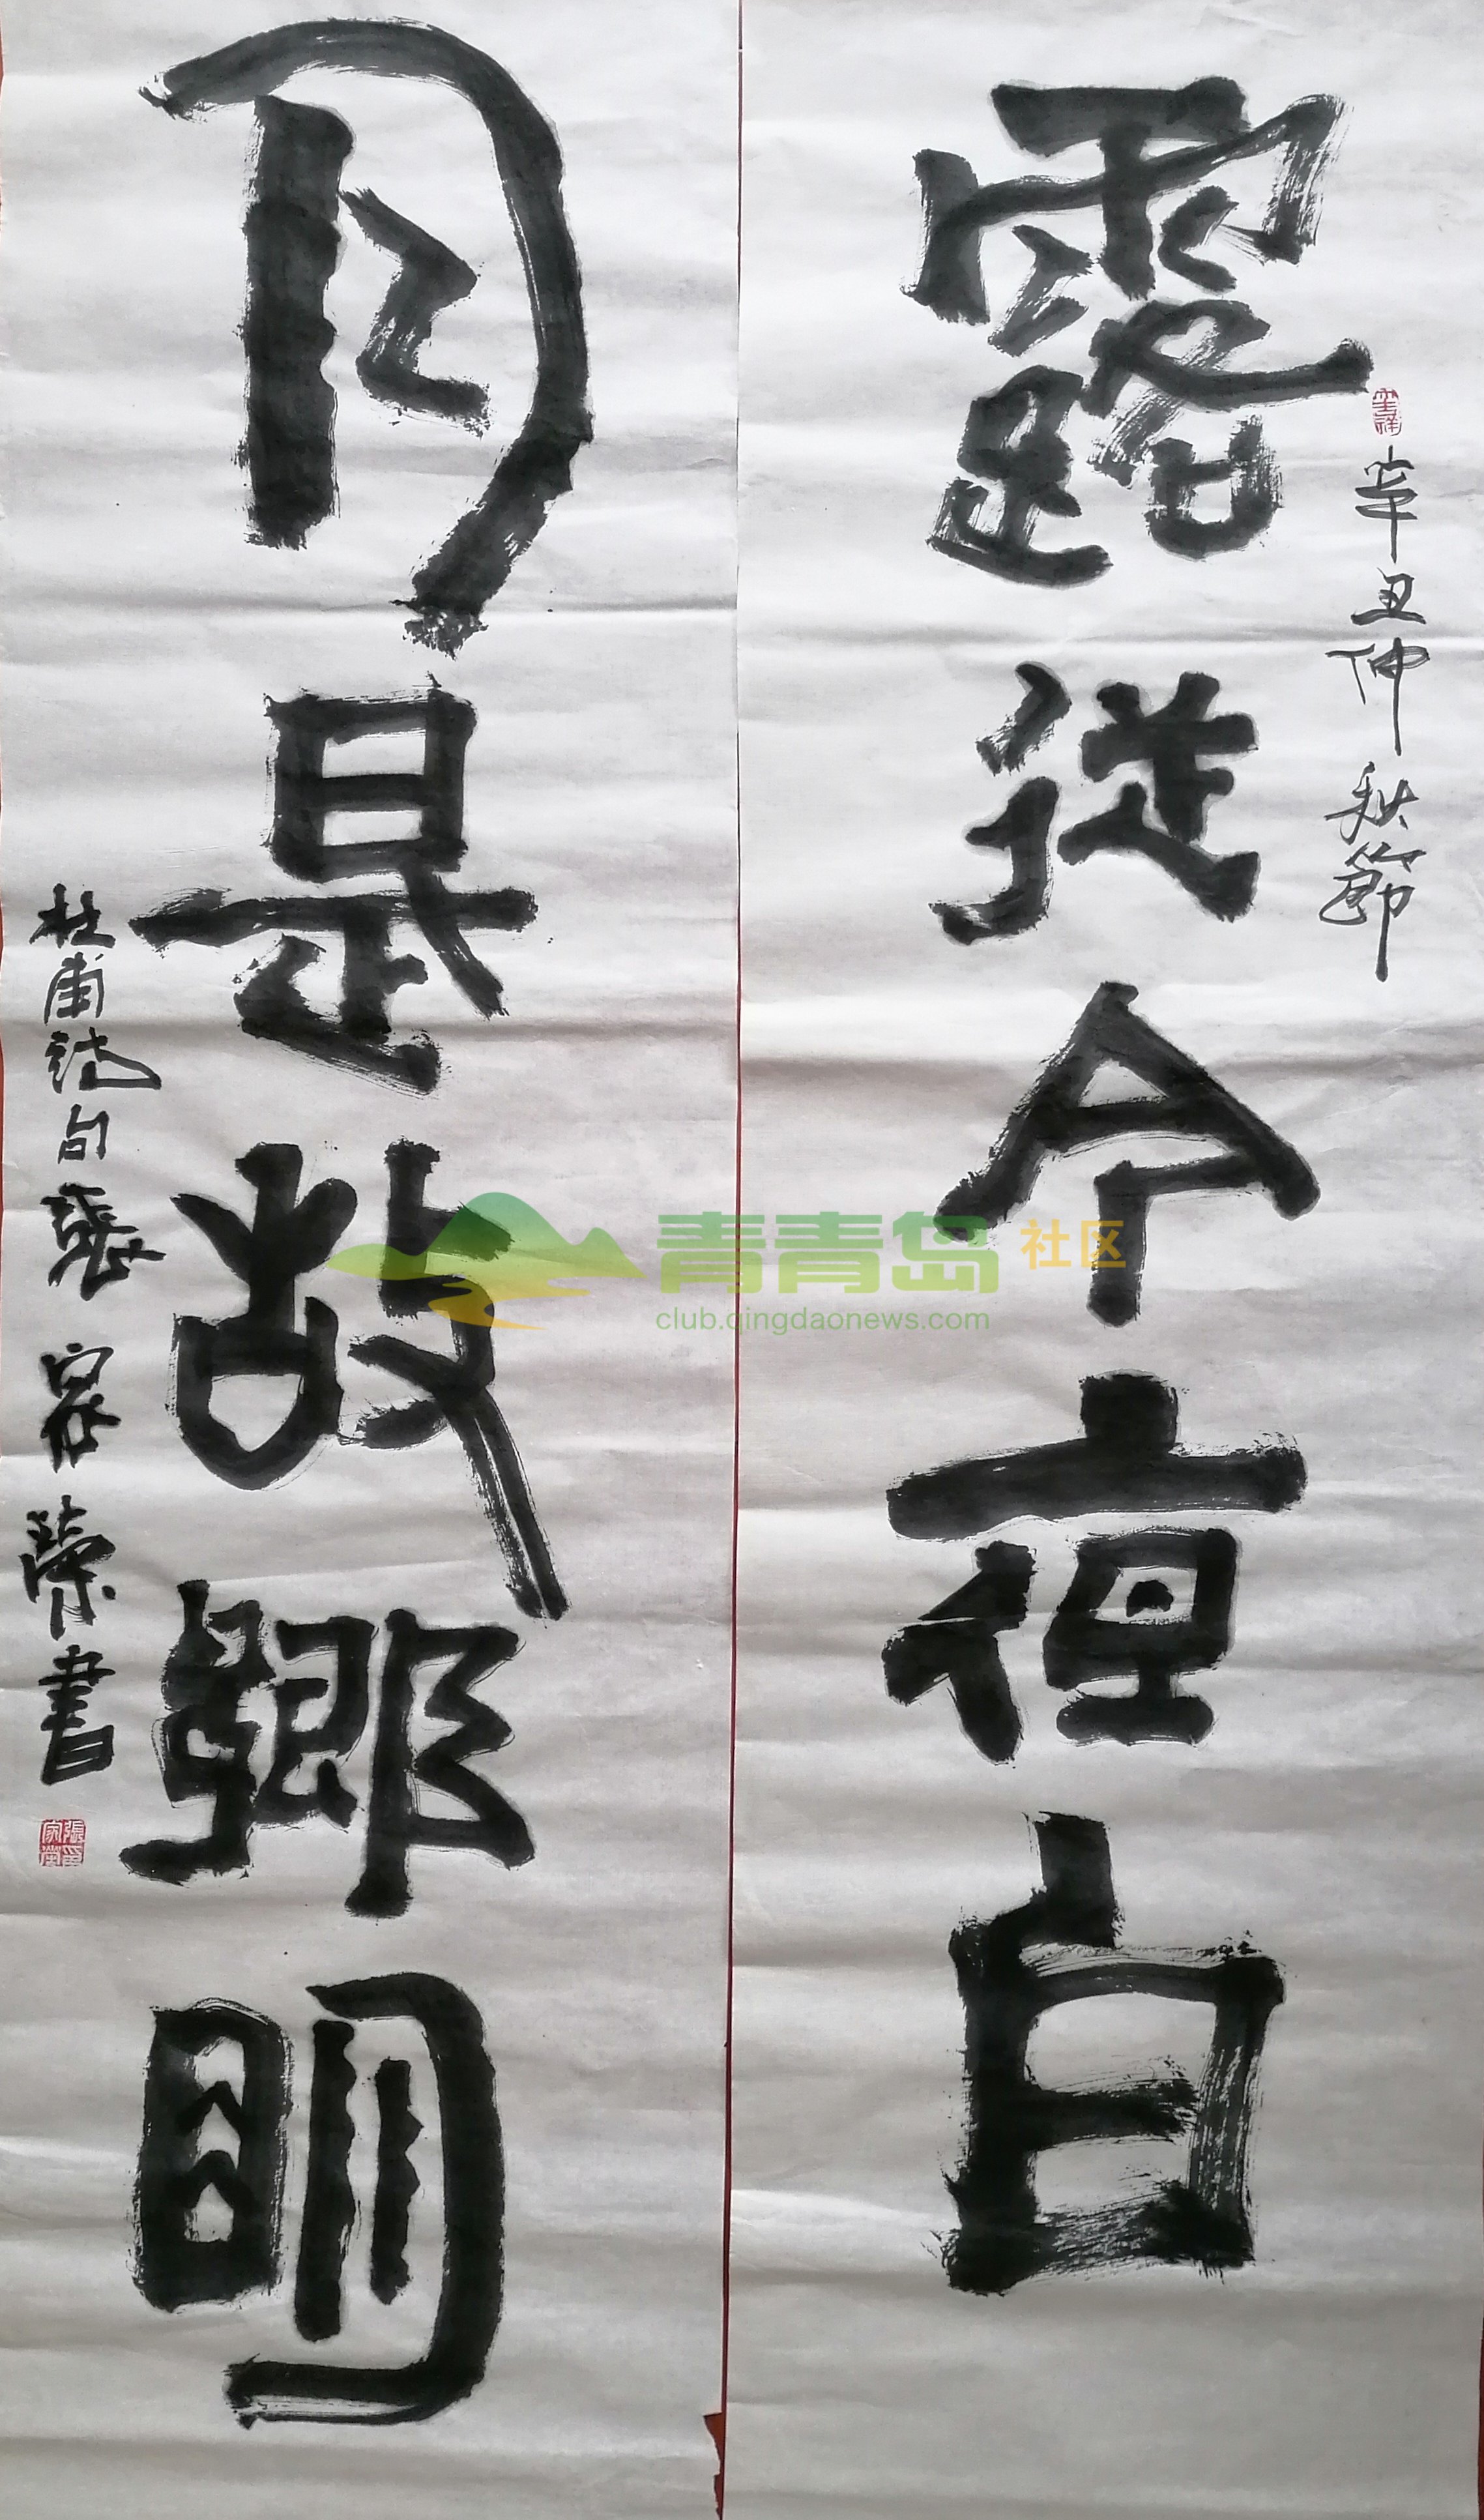 辛丑仲秋節
露從今夜白
月是故鄉明
杜甫詩句張家榮書
張家榮印
青青岛社区
club.qingdaonews.com